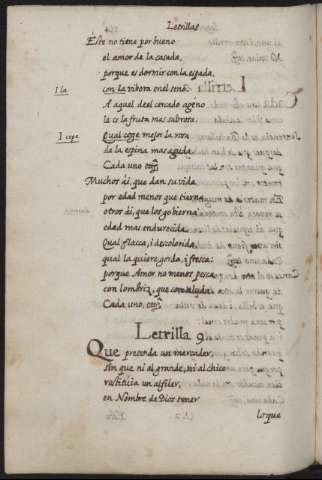 Letrillas
Este no tiene por bueno
el amor de la casada,
porque es dormir con la espada,
I la
con la vibora en el seno.
A aquel del cercado ageno
le es la fruta mas sabrosa.
I coge
Qual coge mejor la rosa
de la espina mas aguda.
Cada uno etc.
Muchos ái, que dan su vida
por edad menos que tierna
otros ái, que los gobierna
edad mas endurecida.
Qual flacca, i descolorida,
qual la quiere gorda, i fresca:
porque Amor no menos pesca
con lombriz, que con
Cada uno, etc.
Letrilla 9.
Que pretenda un mercader,
sin que ni al grande, ni al chico
restituia un alfiler,
en Nombre de Dios tener
lo que